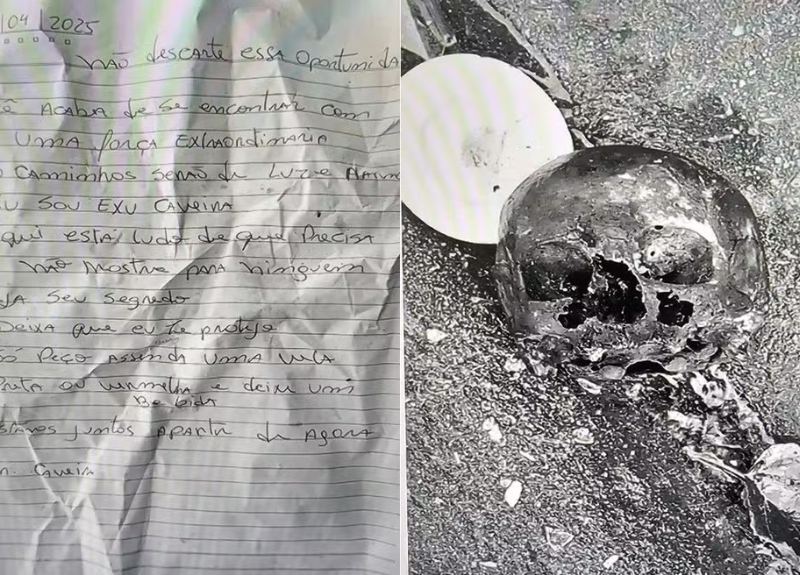 04 2025
Não descarte essa oportunida
ê Acaba de se encontrar com
uma força extraordinaria
Caminhos serão de Luz e
u sou Exu Caveira
qui está tudo de que precisa
não mostre para ninguem
JA seu segredo
Deixa que eu te protejo
só Peço Assenda uma vela
Preta ou vermelha e deixe uma
Bebida
juntos apartir de Agora
Caveira